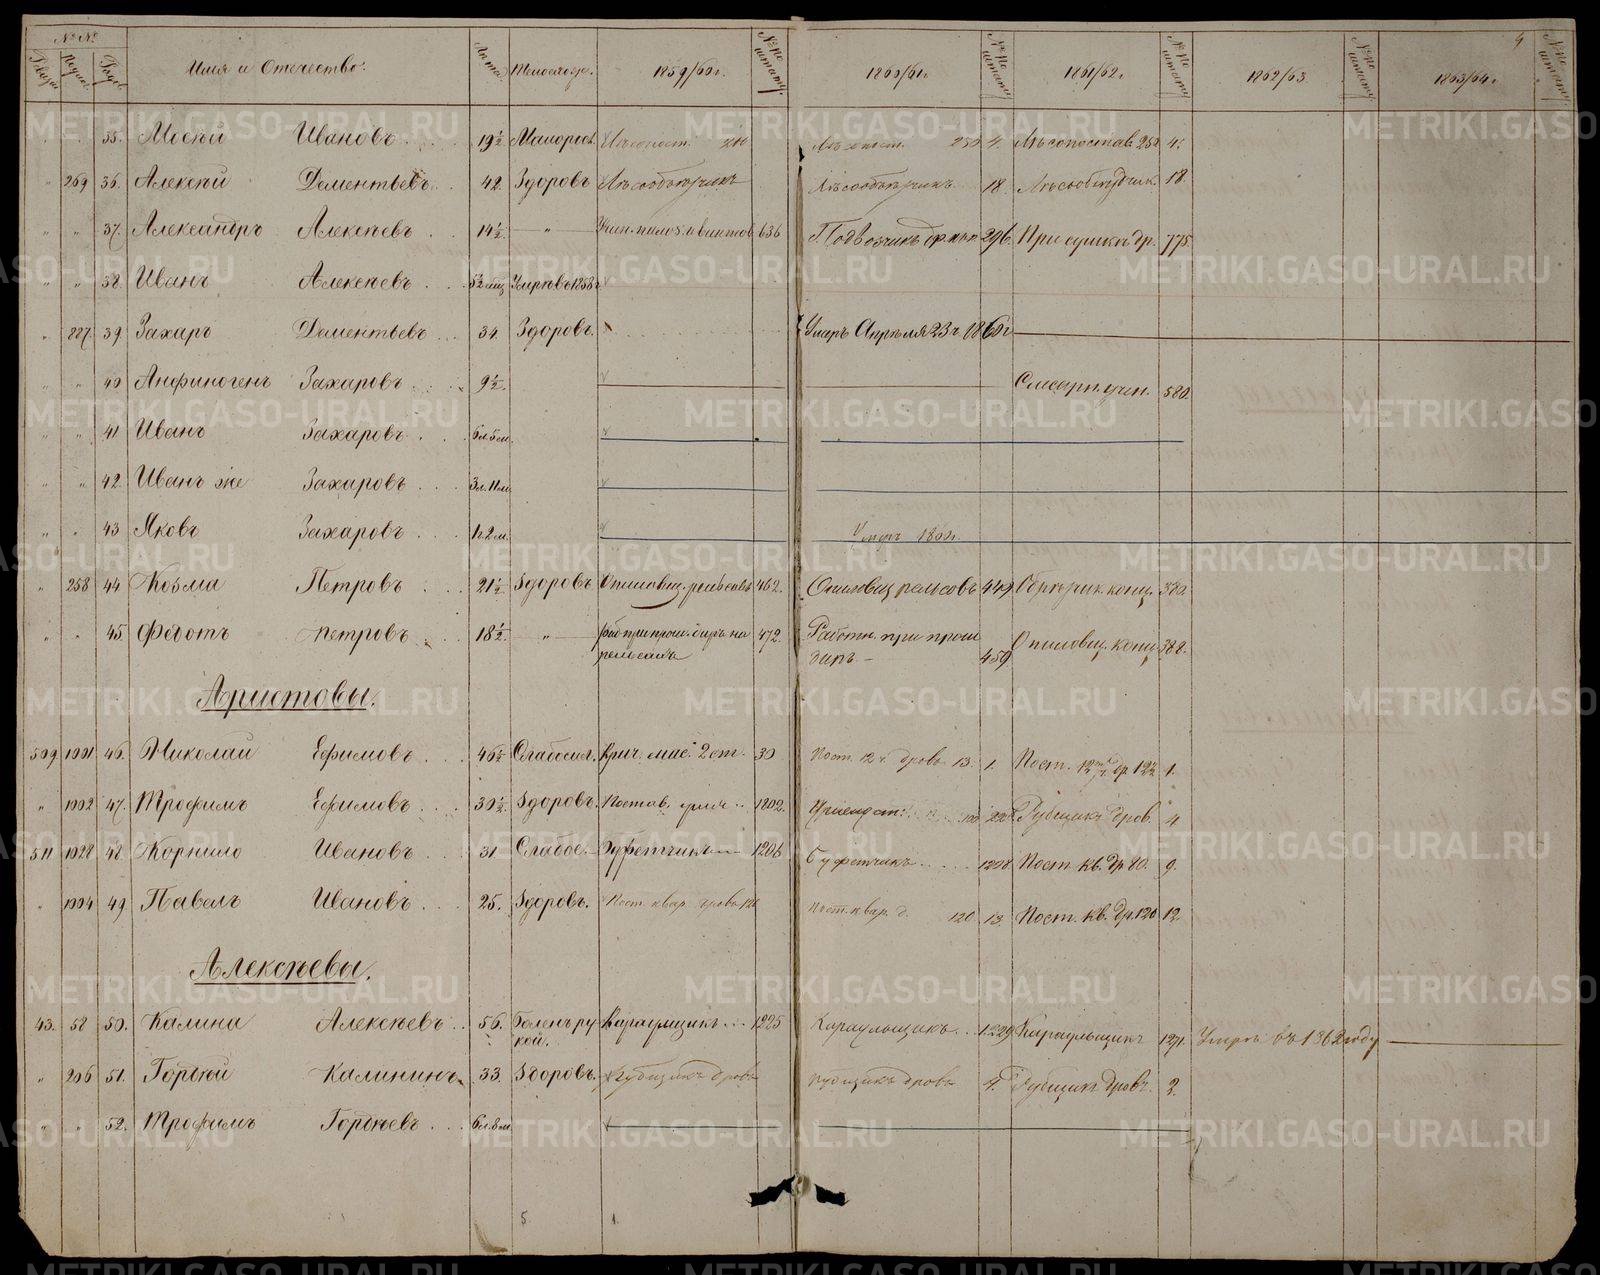 №№ Имя и Отчество. Лѣта. Тѣлослож. 1859/60 г. №№ по штату. 1860/61 г. №№ по штату 1861/62 г. №№ по штату 1862/63 №№ по штату 1863/64 г. №№ по штату 4
" " 35. Мосѣй Ивановъ 19½ Малоросл. 250 4. Лѣсопостав. 250 4.
" 269 36. Алексѣй Дементьевъ 42. Здоровъ Лѣсообъѣзчикъ Лѣсообъѣзчикъ 18. Лѣсообъѣздчик. 18.
" " 37. Александръ Алексѣевъ 14½ " 636 Подвозчикъ 296. При сушкѣ др. 775.
" " 38. Иванъ Алексѣевъ Умеръ въ 1858 г
" 227. 39. Захаръ Дементьевъ 34. Здоровъ. Умеръ Апрѣля 23 ч. 1860 г
" " 40 Анфиногенъ Захаровъ 9½. Слесарн. учен. 580.
" " 41 Иванъ Захаровъ 6 л. 5 м.
" " 42. Иванъ же Захаровъ 3 л. 11 м.
" " 43 Яковъ Захаровъ 1 г. 2 м. Умеръ 1860 г.
" 258 44 Козма Петровъ 21½ Здоровъ Опиловщ. рельсовъ 462. Опиловщ. рельсовъ 449 Обрѣзчик. конц. 380.
" " 45. Федотъ Петровъ 18½. " Раб. при прош. дыръ на рельсахъ 472. Работн. при прош. дыръ 459 Опиловщ. конц. 388.
Аристовы.
509 1001 46. Николай Ефимовъ 46½ Слабосил. Крич. мас. 2 ст. 30 Пост. 12 ч. дровъ 13. 1. Пост. 12½ 1.
" 1002 47. Трофимъ Ефимовъ 30½ Здоровъ. Постав. 1802. Рубщикъ дров. 4
511 1028 48. Корнило Ивановъ 31 Слабос. Буфетчикъ 1206 Буфетчикъ 1208 Пост. кв. др. 80. 9.
" 1004 49 Павелъ Ивановъ 25. Здоровъ. Пост. квар. дровъ 120 Пост. квар. д. 120 13. Пост. кв. др. 120 12
Алексѣевы.
43. 52 50. Калина Алексѣевъ 56. Боленъ рукой. Караульщикъ 1225 Караульщикъ 1229 Караульщикъ 1271. Умеръ въ 1862 году
" 206 51. Гордѣй Калининъ 33. Здоровъ. Рубщикъ дровъ Рубщикъ дровъ 4. Рубщикъ дровъ. 2.
" " 52. Трофимъ Гордѣевъ 6 л. 8 м.
5. 1.
METRIKI.GASO-URAL.RU